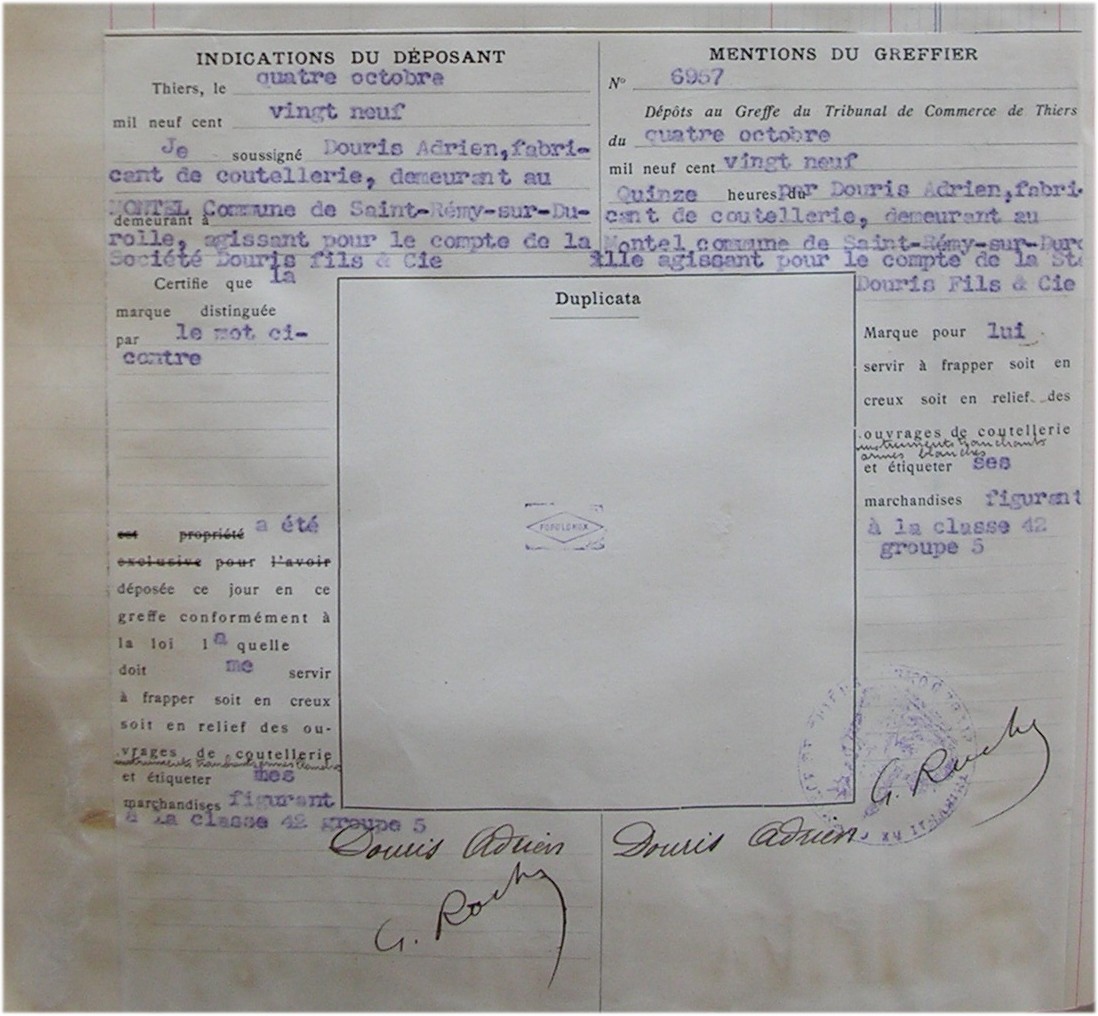 INDICATIONS DU DÉPOSANT
Thiers, le quatre octobre
mil neuf cent vingt neuf
Je soussigné Douris Adrien, fabri-
cant de coutellerie, demeurant au
demeurant à MONTEL Commune de Saint-Rémy-sur-Du-
rolle, agissant pour le compte de la
Société Douris fils & Cie
Certifie que la
marque distinguée
par le mot ci-
contre
est propriété a été
exclusive pour l'avoir
déposée ce jour en ce
greffe conformément à
la loi la quelle
doit me servir
à frapper soit en creux
soit en relief des ou-
vrages de coutellerie
instruments tranchants armes blanches
et étiqueter mes
marchandises figurant
à la classe 42 groupe 5
Douris Adrien
MENTIONS DU GREFFIER
N° 6957
Dépôts au Greffe du Tribunal de Commerce de Thiers
du quatre octobre
mil neuf cent vingt neuf
Quinze heures, du par Douris Adrien, fabri-
cant de coutellerie, demeurant au
Montel commune de Saint-Rémy-sur-Duro
lle agissant pour le compte de la Sté
Douris Fils & Cie
Duplicata
Marque pour lui
servir à frapper soit en
creux soit en relief des
ouvrages de coutellerie
instruments tranchants
armes blanches
et étiqueter ses
marchandises figurant
à la classe 42
groupe 5
Douris Adrien